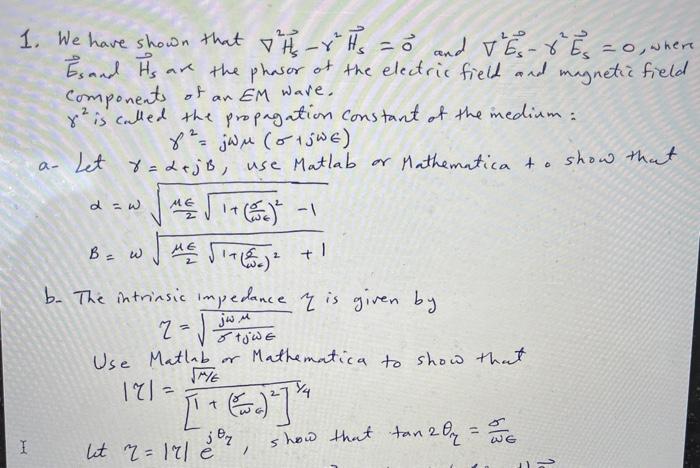 1. We have shown that ∇²H⃗s - γ²H⃗s = 0⃗ and ∇²E⃗s - γ²E⃗s = 0, where
E⃗s and H⃗s are the phasor of the electric field and magnetic field
components of an EM wave.
γ² is called the propagation constant of the medium:
γ² = jωμ (σ+jωε)
a- Let γ = α+jβ, use Matlab or Mathematica to show that
α = ω √(με/2 √(1+(σ/ωε)²) - 1)
β = ω √(με/2 √(1+(σ/ωε)²) + 1)
b- The intrinsic impedance η is given by
η = √(jωμ/(σ+jωε))
Use Matlab or Mathematica to show that
|η| = √(μ/ε) / [1 + (σ/ωε)²]^(1/4)
let η = |η| e^(jθη), show that tan 2θη = σ/ωε